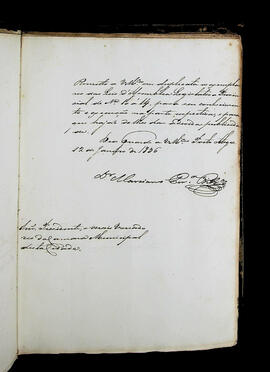 Remetto a Vmces em duplicata os exempla-
res das Leis d'Assemblea Legislativa Provin-
cial de Nos 10 a 14, para seu conhecimen-
to e execução na parte respectiva, e para
que haja de lhe dar a devida publicida-
de.
Deos Guarde a Vmces Porto Alegre
12 de Janeiro de 1836
Dr Marciano Pra Ribro
Snrs Presidente, e mais Vereado-
res da Camara Municipal
desta Cidade.